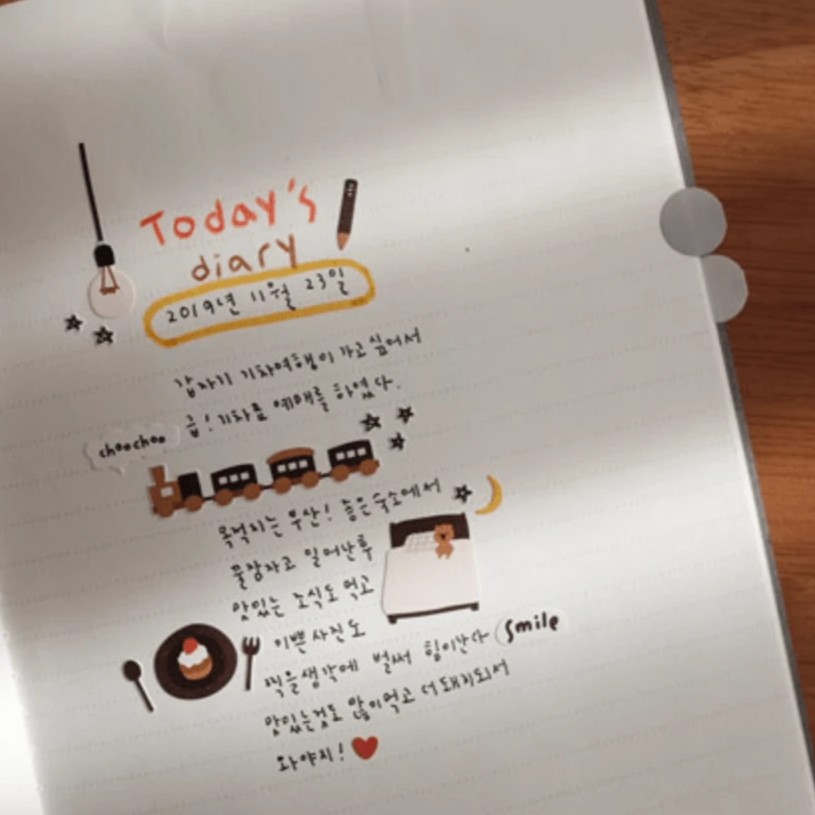 Today's
diary
2019년 11월 23일
갑자기 기차여행이 가고 싶어서
급! 기차표 예매를 하였다.
choochoo
목적지는 부산! 좋은숙소에서
꿀잠자고 일어난후
맛있는 조식도 먹고
이쁜사진도
찍을생각에 벌써 힘이난다 smile
맛있는것도 많이먹고 더 돼지되어
와야지!